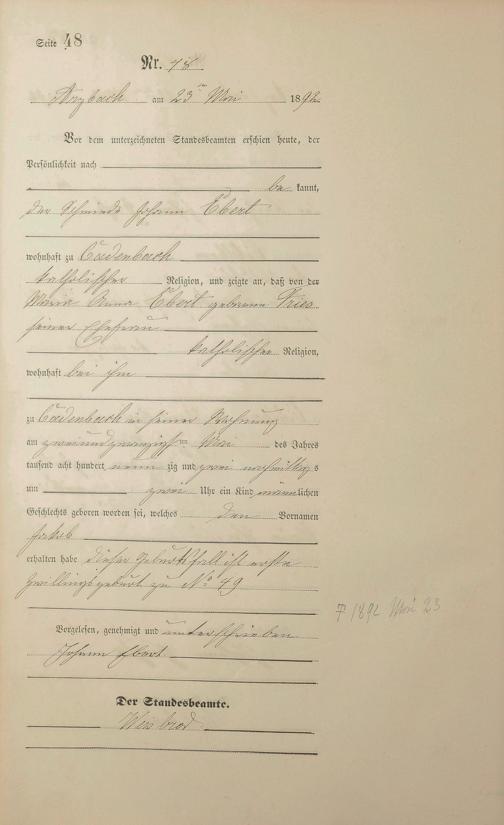 Seite 48
Nr. 48
Arzbach am 23ten Mai 1892
Vor dem unterzeichneten Standesbeamten erschien heute, der
Persönlichkeit nach
be kannt,
der Schmied Johann Ebert
wohnhaft zu Cadenbach
katholischer Religion, und zeigte an, daß von der
Maria Anna Ebert geborene Fries
seiner Ehefrau
katholischer Religion,
wohnhaft bei ihm
zu Cadenbach in seiner Wohnung
am zweiundzwanzigsten Mai des Jahres
tausend acht hundert neun zig und zwei nachmittags
um zwei Uhr ein Kind männlichen
Geschlechts geboren worden sei, welches den Vornamen
Jakob
erhalten habe dieser Geburtsfall ist erste
Zwillingsgeburt zu No 49
Vorgelesen, genehmigt und unterschrieben
Johann Ebert
Der Standesbeamte.
Weisbrod
† 1892 Mai 23